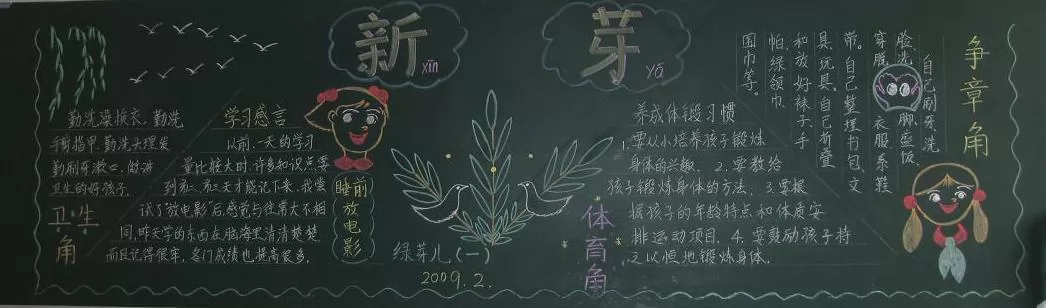 新 芽
xīn yá
勤洗澡换衣、勤洗
手剪指甲、勤洗头理发
勤刷牙漱口、做讲
卫生的好孩子。
卫生
角
学习感言
以前,一天的学习
量比较大时,许多知识点要
到第二、第三天才能记下来,我尝
试了“放电影”后,感觉与往常大不相
同,昨天学的东西在脑海里清清楚楚
而且记得很牢,各门成绩也提高很多。
睡前
放
电
影
绿芽儿(一)
2009.2.
养成体锻习惯
1.要从小培养孩子锻炼
身体的兴趣。2.要教给
孩子锻炼身体的方法。3.要根
据孩子的年龄特点和体质安
排运动项目。4.要鼓励孩子持
之以恒地锻炼身体。
体
育
角
争
章
角
自己刷牙、洗
脸、洗脚、盛饭、
穿脱衣服、系鞋
带。自己整理书包、文
具、玩具、自己折叠
和放好袜子、手
帕、绿领巾、
围巾等。